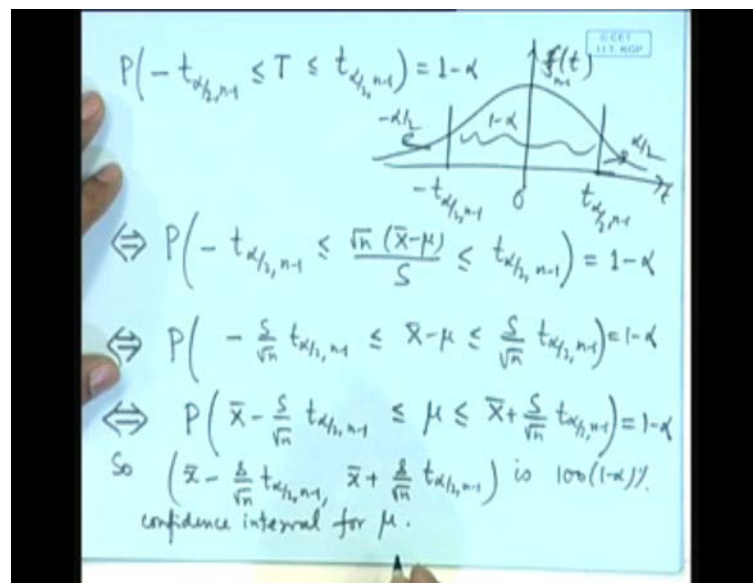 P(-t_{α/2, n-1} ≤ T ≤ t_{α/2, n-1}) = 1-α
f_{n-1}(t)
C CET
I.I.T. KGP
-α/2
1-α
α/2
-t_{α/2, n-1}
0
t_{α/2, n-1}
t
⇔ P(-t_{α/2, n-1} ≤ √n (x̄-μ)/S ≤ t_{α/2, n-1}) = 1-α
⇔ P(-S/√n t_{α/2, n-1} ≤ x̄-μ ≤ S/√n t_{α/2, n-1}) = 1-α
⇔ P(x̄ - S/√n t_{α/2, n-1} ≤ μ ≤ x̄ + S/√n t_{α/2, n-1}) = 1-α
So (x̄ - s/√n t_{α/2, n-1}, x̄ + s/√n t_{α/2, n-1}) is 100(1-α)%.
confidence interval for μ.